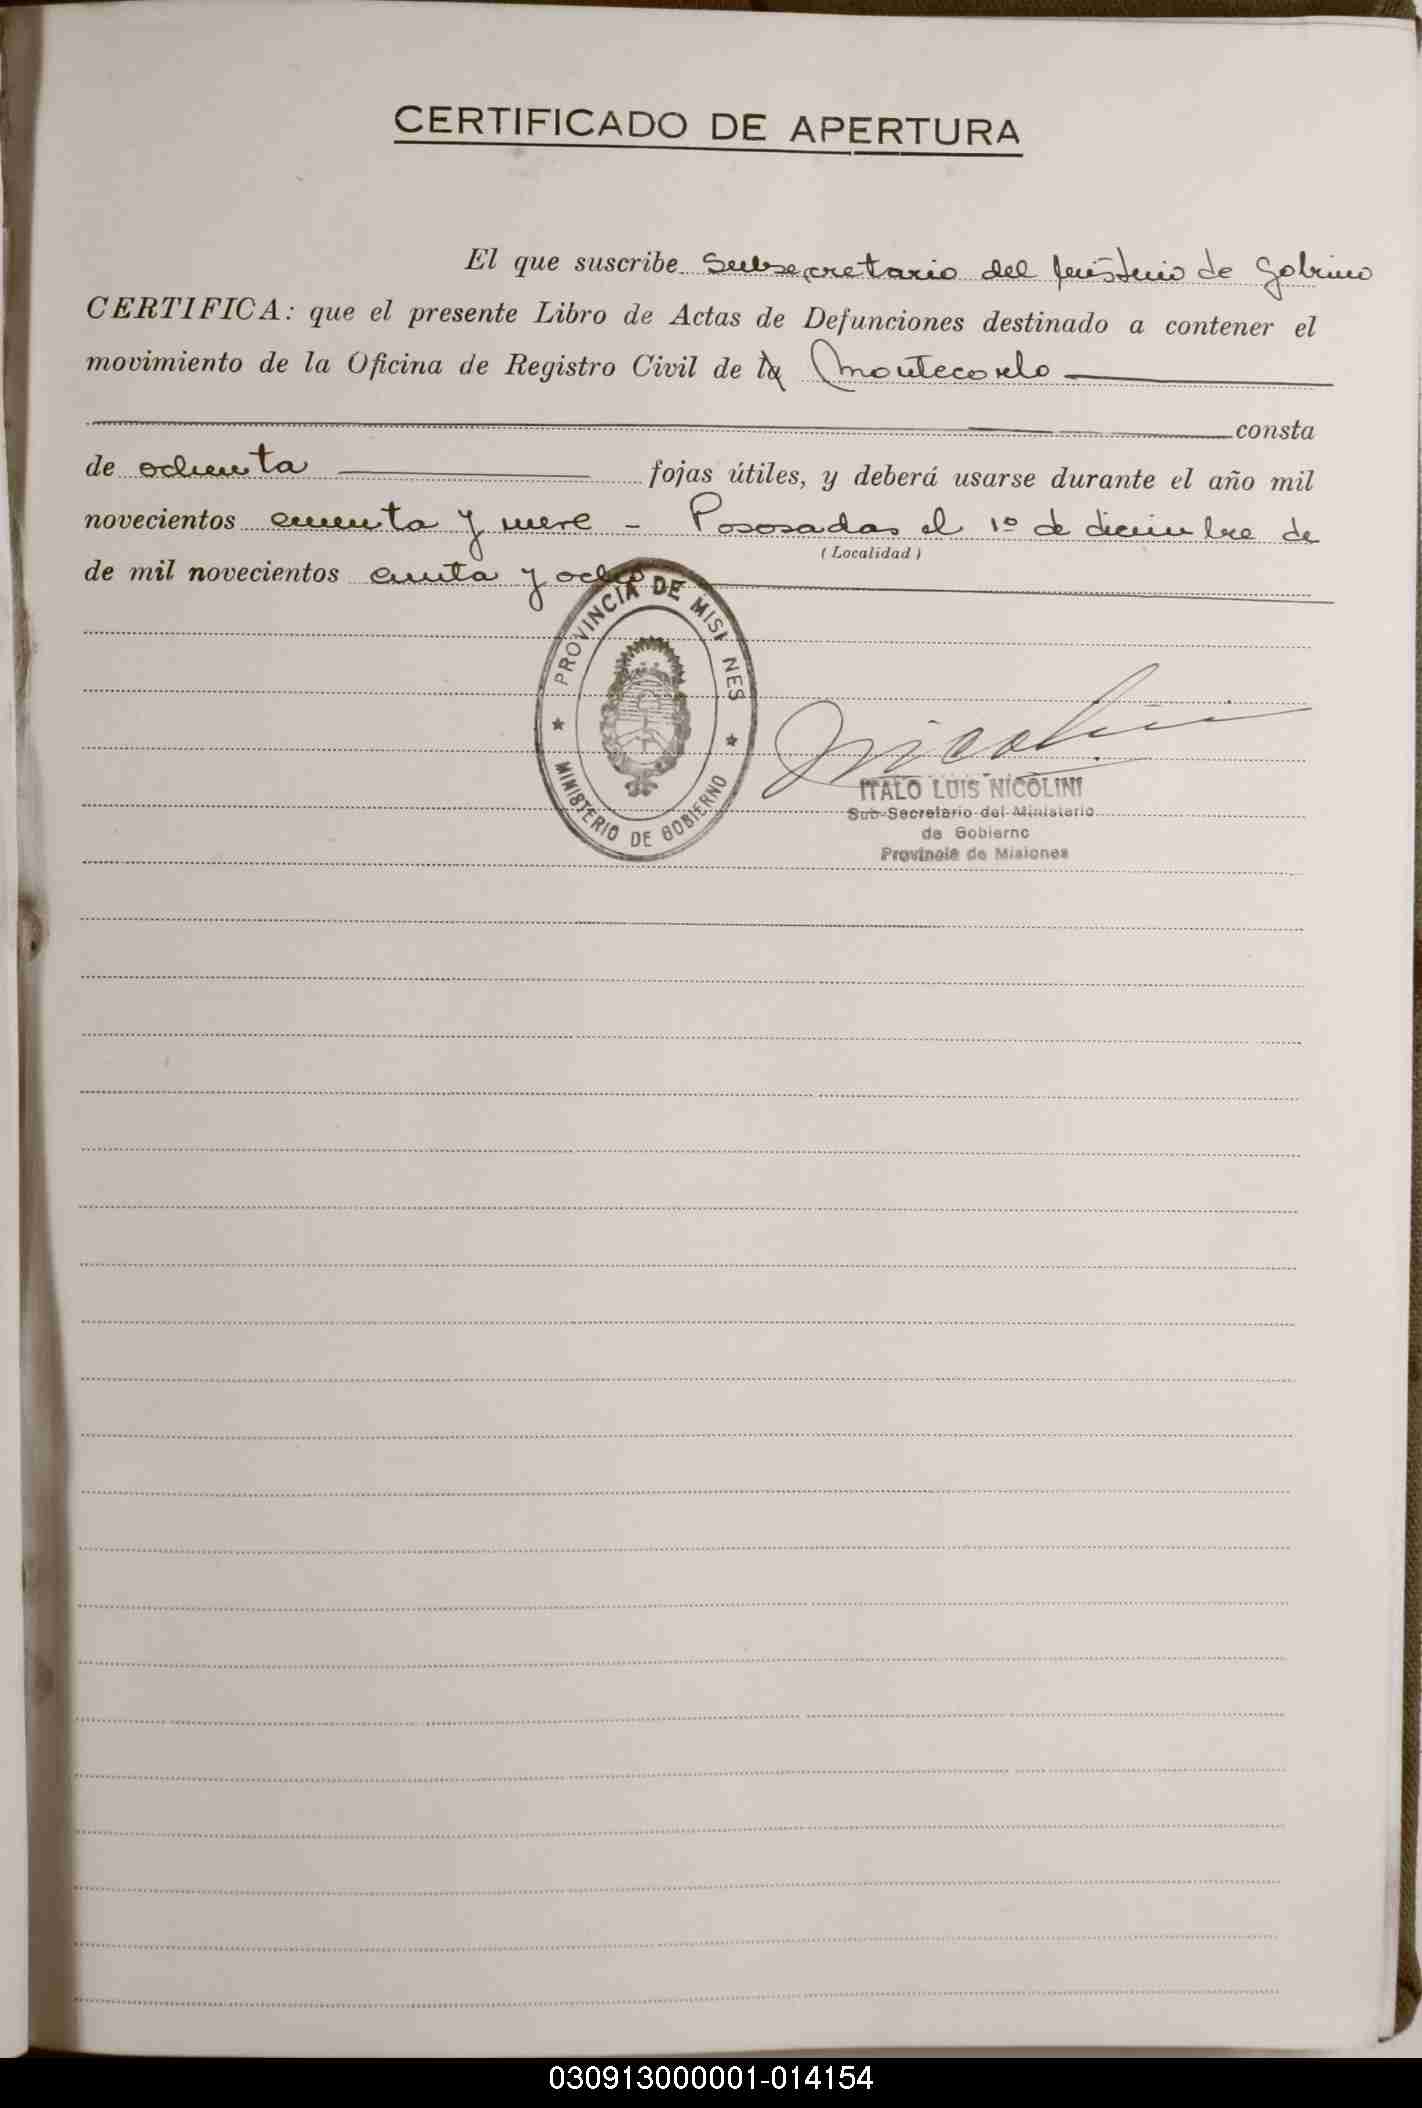 CERTIFICADO DE APERTURA
El que suscribe Subsecretario del Ministerio de Gobierno
CERTIFICA: que el presente Libro de Actas de Defunciones destinado a contener el
movimiento de la Oficina de Registro Civil de la Montecarlo
consta
de ochenta fojas útiles, y deberá usarse durante el año mil
novecientos cincuenta y nueve - Posadas el 1º de diciembre de
(Localidad)
de mil novecientos cincuenta y ocho
PROVINCIA DE MISIONES
MINISTERIO DE GOBIERNO
Nicolini
ITALO LUIS NICOLINI
Sub-Secretario del Ministerio
de Gobierno
Provincia de Misiones
030913000001-014154